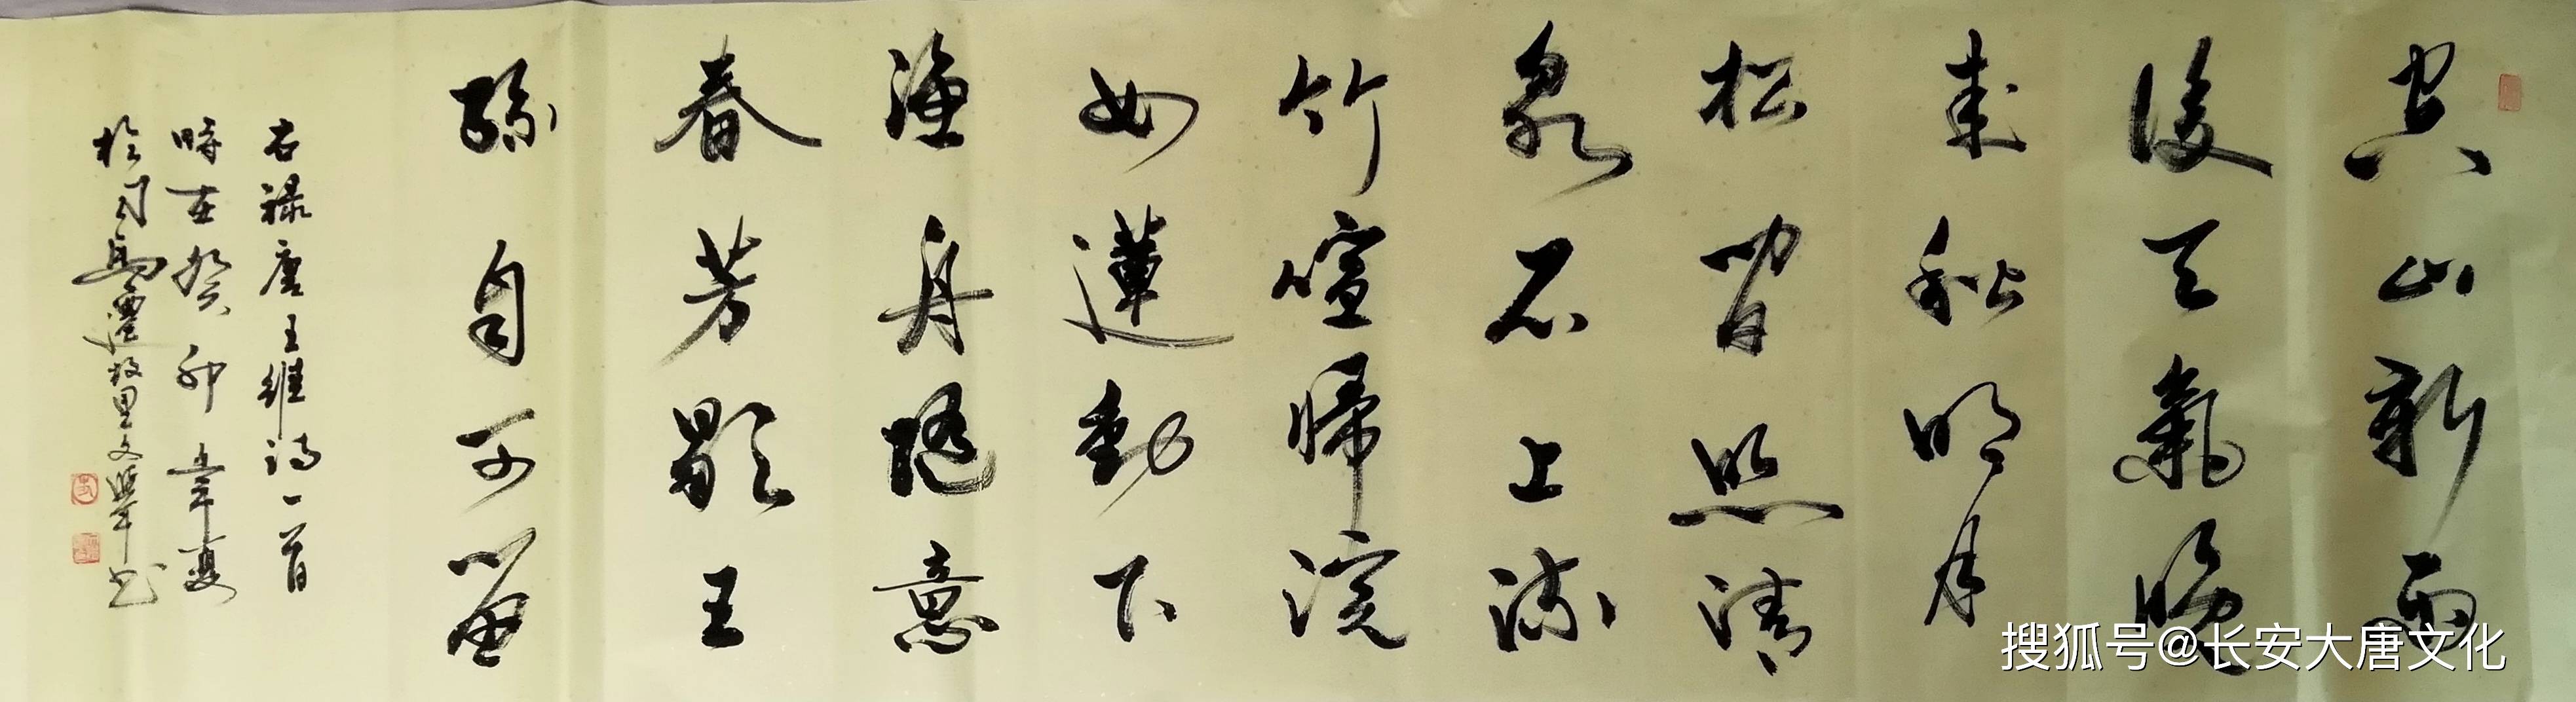 空山新雨
後天氣晚
来秋明月
松間照清
泉石上流
竹喧歸浣
女蓮動下
漁舟隨意
春芳歇王
孫自可留
右禄唐王維詩一首
時在癸卯年夏
於司馬遷故里文 书
搜狐号@长安大唐文化